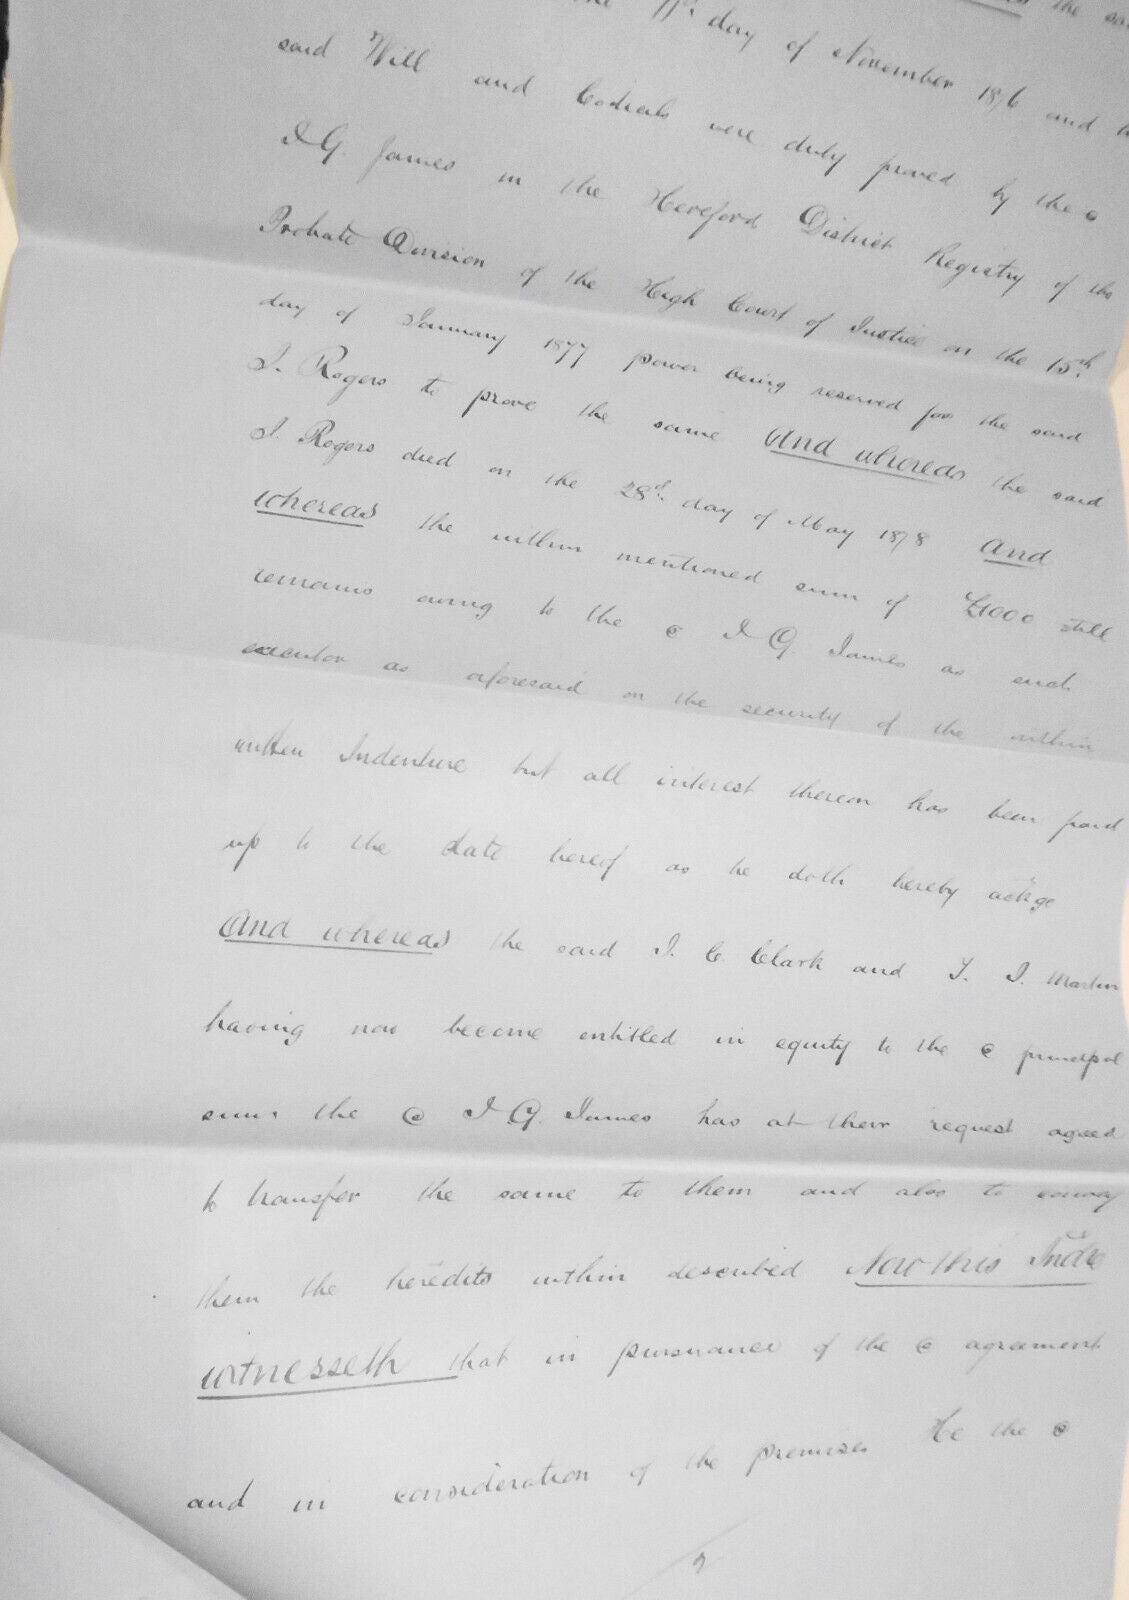 the 11th day of November 1876 and the
said Will and Codicils were duly proved by the c
J G. James in the Hereford District Registry of the
Probate Division of the High Court of Justice on the 15th
day of January 1877 power being reserved for the said
J. Rogers to prove the same And whereas the said
J. Rogers died on the 28th day of May 1878 And
whereas the within mentioned sum of £1000 still
remains owing to the c J G. James as such
executor as aforesaid on the security of the within
written Indenture but all interest thereon has been paid
up to the date hereof as he doth hereby ackge
And whereas the said J. C. Clark and T. J. Martin
having now become entitled in equity to the c principal
sum the c J G. James has at their request agreed
to transfer the same to them and also to convey
them the heredits within described Now this Indre
witnesseth that in pursuance of the c agreement
and in consideration of the premises He the c